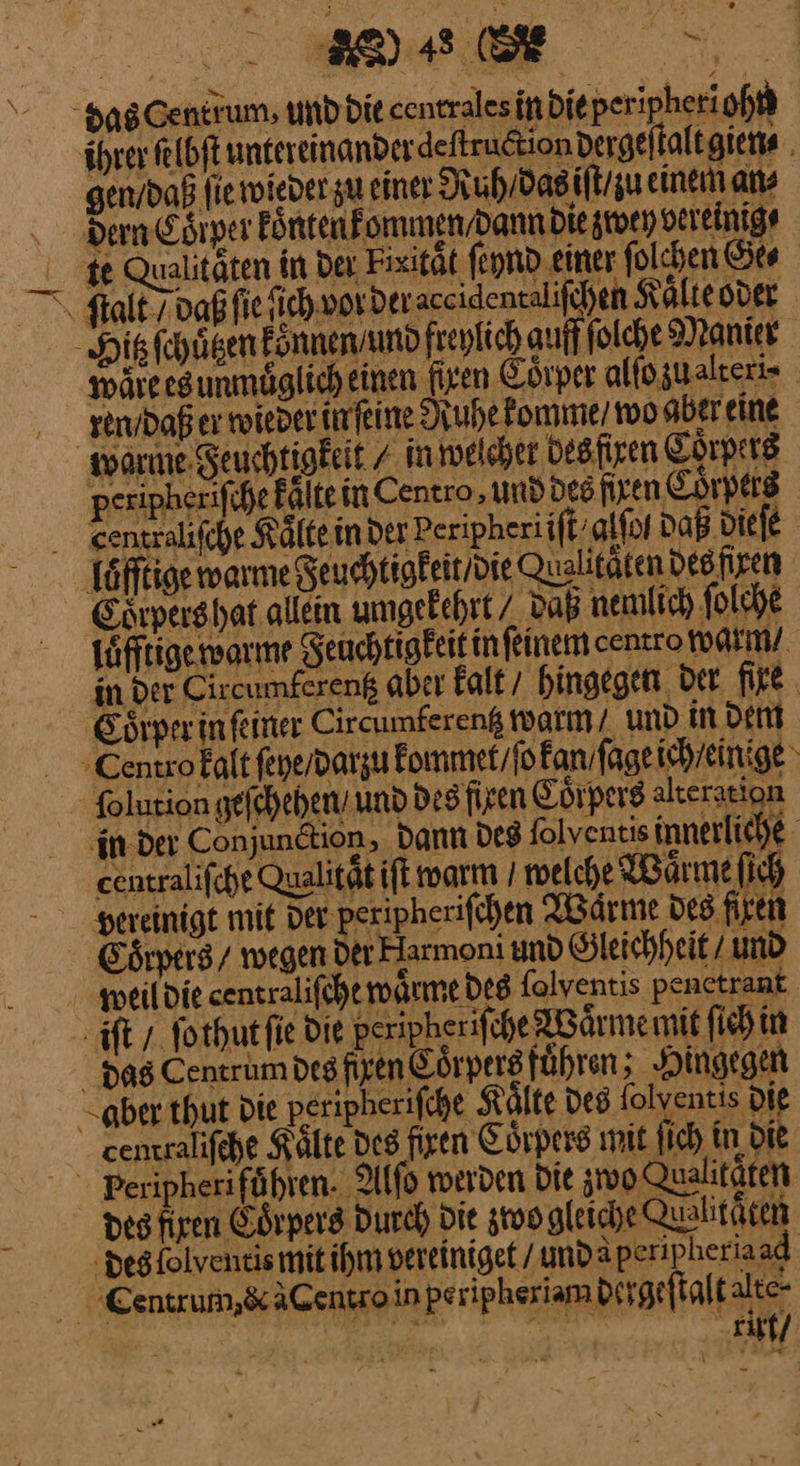 48
das Centrum, und die centrales in die peripheri ohn
ihrer ſelbſt untereinander deſtruction dergeſtalt gien⸗
gen/daß ſie wieder zu einer Ruh/das iſt/zu einem an⸗
dern Coͤrper koͤnten kommen/dann die zwey vereinig⸗
te Qualitaͤten in der Fixitaͤt ſeynd einer ſolchen Ge⸗
ſtalt / daß ſie ſich vor der accidentaliſchen Kaͤlte oder
Hitz ſchuͤtzen koͤnnen/und freylich auff ſolche Manier
waͤre es unmuͤglich einen fixen Coͤrper alſo zu alteri-
ren/daß er wieder in ſeine Ruhe komme/ wo aber eine
warme Feuchtigkeit / in welcher des fixen Coͤrpers
peripheriſche kaͤlte in Centro, und des fixen Coͤrpers
centraliſche Kaͤlte in der Peripheri iſt/ alſo/ daß dieſe
luͤfftige warme Feuchtigkeit/die Qualitaͤten des fixen
Coͤrpers hat allein umgekehrt / daß nemlich ſolche
luͤfftige warme Feuchtigkeit in ſeinem centro warm/
in der Circumferentz aber kalt / hingegen der fixe
Coͤrper in ſeiner Circumferentz warm / und in dem
Centro kalt ſeye/darzu kommet/ſo kan/ſage ich/einige
ſolution geſchehen/ und des fixen Coͤrpers alteration
in der Conjunction, dann des ſolventis innerliche
centraliſche Qualitaͤt iſt warm / welche Waͤrme ſich
vereinigt mit der peripheriſchen Waͤrme des fixen
Coͤrpers / wegen der Harmoni und Gleichheit / und
weil die centraliſche waͤrme des ſolventis penetrant
iſt / ſo thut ſie die peripheriſche Waͤrme mit ſich in
das Centrum des fixen Coͤrpers fuͤhren; Hingegen
aber thut die peripheriſche Kaͤlte des ſolventis die
centraliſche Kaͤlte des fixen Coͤrpers mit ſich in die
Peripheri fuͤhren. Alſo werden die zwo Qualitaͤten
des fixen Coͤrpers durch die zwo gleiche Qualitaͤten
des ſolventis mit ihm vereiniget / und à peripheria ad
Centrum, & à Centro in peripheriam dergeſtalt alte-
rirt/